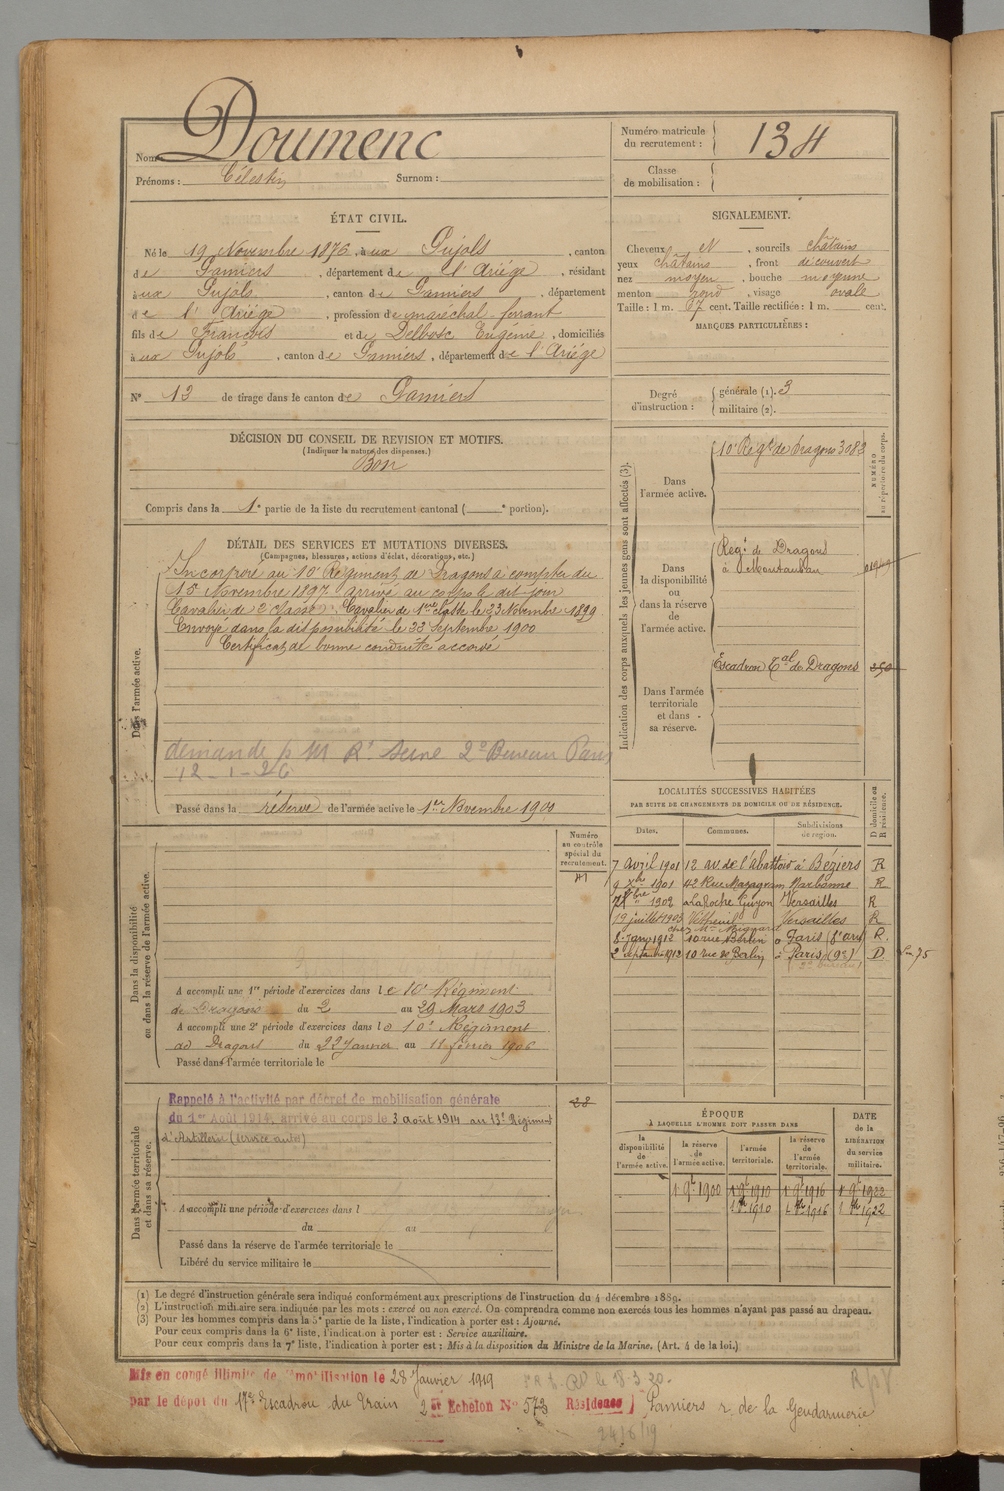 Nom Doumenc
Prénoms : Célestin Surnom :
Numéro matricule du recrutement : 134
Classe de mobilisation :
ÉTAT CIVIL.
Né le 19 Novembre 1876, à ux Pujols, canton
de Pamiers, département de l'Ariége, résidant
à ux Pujols, canton de Pamiers, département
de l'Ariége, profession de maréchal ferrant
fils de François et de Delbosc Eugénie, domiciliés
à ux Pujols, canton de Pamiers, département de l'Ariége
N° 13 de tirage dans le canton de Pamiers
SIGNALEMENT.
Cheveux N, sourcils châtains
yeux châtains, front découvert
nez moyen, bouche moyenne
menton rond, visage ovale
Taille : 1 m. 67 cent. Taille rectifiée : 1 m. cent.
MARQUES PARTICULIÈRES :
Degré d'instruction : générale (1). 3
militaire (2).
DÉCISION DU CONSEIL DE REVISION ET MOTIFS.
(Indiquer la nature des dispenses.)
Bon
Compris dans la 1e partie de la liste du recrutement cantonal ( e portion).
DÉTAIL DES SERVICES ET MUTATIONS DIVERSES.
(Campagnes, blessures, actions d'éclat, décorations, etc.)
Dans l'armée active.
Incorporé au 10e Régiment de Dragons à compter du
15 Novembre 1897 arrivé au corps le dit jour
Cavalier de 2e classe. Cavalier de 1ere classe le 23 Novembre 1899
Envoyé dans la disponibilité le 23 Septembre 1900
Certificat de bonne conduite accordé
demande p M Rt Seine 2e Bureau Paris
12-1-26
Passé dans la réserve de l'armée active le 1er Novembre 1900
Indication des corps auxquels les jeunes gens sont affectés (3).
NUMÉRO au répertoire du corps.
Dans l'armée active.
10e Regt de Dragons 3082
Dans la disponibilité ou dans la réserve de l'armée active.
Regt de Dragons
à Montauban
Dans l'armée territoriale et dans sa réserve.
Escadron Tal de Dragons 350
LOCALITÉS SUCCESSIVES HABITÉES
PAR SUITE DE CHANGEMENTS DE DOMICILE OU DE RÉSIDENCE.
D domicile ou R résidence.
Dates. Communes. Subdivisions de région.
7 avril 1901 12 av. de l'abattoir à Béziers R
9 xbre 1901 42 Rue Mazagran Narbonne R
1902 La Roche Guyon Versailles R
19 juillet 1903 Vetheuil Versailles R
chez Mr
8 Janv 1912 10 rue Berlin à Paris (8e arr) R.
2 septembre 1912 10 rue de Berlin à Paris (9e) D
Numéro au contrôle spécial du recrutement.
Dans la disponibilité ou dans la réserve de l'armée active.
A accompli une 1re période d'exercices dans le 10e Régiment
de Dragons du 2 au 29 Mars 1903
A accompli une 2e période d'exercices dans le 10e Régiment
de Dragons du 22 Janvier au 18 février 1906
Passé dans l'armée territoriale le
Dans l'armée territoriale et dans sa réserve.
Rappelé à l'activité par décret de mobilisation générale
du 1er Août 1914, arrivé au corps le 3 août 1914 au 13e Régiment
d'Artillerie (service auto)
28
A accompli une période d'exercices dans l
du au
Passé dans la réserve de l'armée territoriale le
Libéré du service militaire le
ÉPOQUE
À LAQUELLE L'HOMME DOIT PASSER DANS
la disponibilité de l'armée active. la réserve de l'armée active. l'armée territoriale. la réserve de l'armée territoriale.
DATE de la LIBÉRATION du service militaire.
1 9e 1900 1 9e 1910 1 9e 1916 1 9e 1922
1910 1916 1922
(1) Le degré d'instruction générale sera indiqué conformément aux prescriptions de l'instruction du 4 décembre 1889.
(2) L'instruction militaire sera indiquée par les mots : exercé ou non exercé. On comprendra comme non exercés tous les hommes n'ayant pas passé au drapeau.
(3) Pour les hommes compris dans la 5e partie de la liste, l'indication à porter est : Ajourné.
Pour ceux compris dans la 6e liste, l'indication à porter est : Service auxiliaire.
Pour ceux compris dans la 7e liste, l'indication à porter est : Mis à la disposition du Ministre de la Marine. (Art. 4 de la loi.)
Mis en congé illimité de démobilisation le 28 Janvier 1919
par le dépot du 17e Escadron du Train 2 et Echelon N° 573 Résidence Pamiers r. de la Gendarmerie
24/6/19